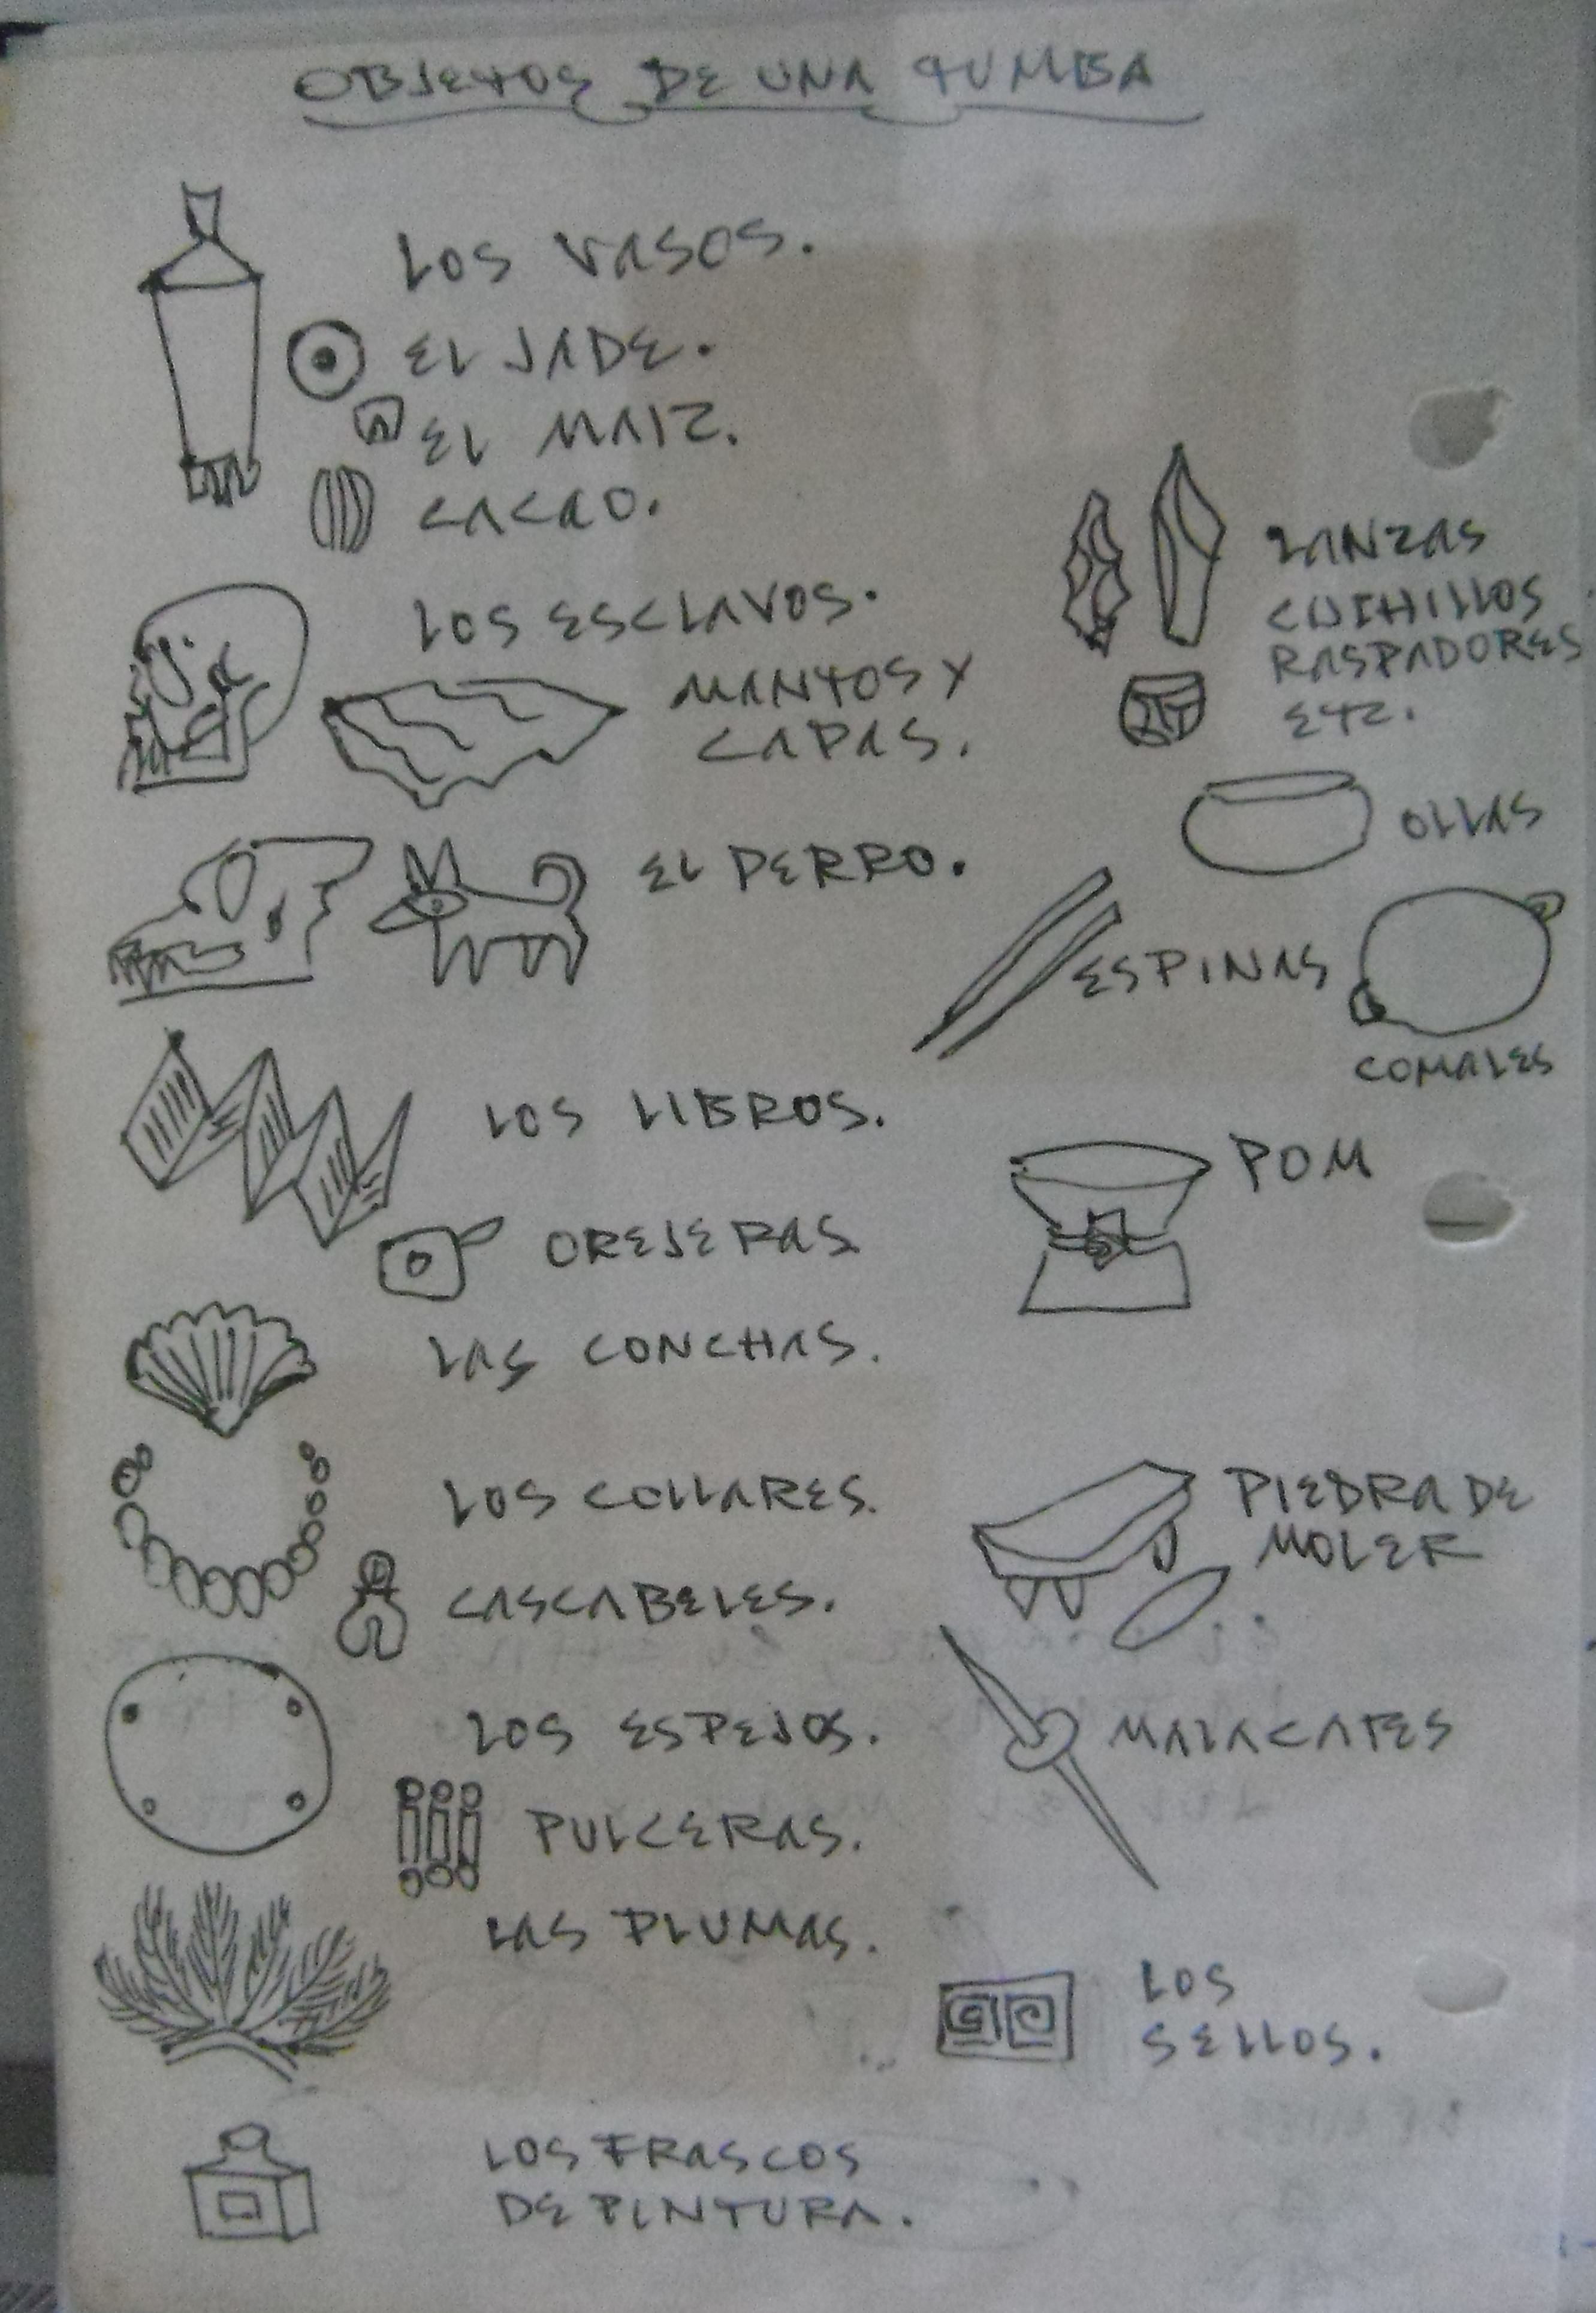 OBJETOS DE UNA TUMBA
LOS VASOS.
EL JADE.
EL MAIZ.
CACAO.
LOS ESCLAVOS.
MANTOS Y
CAPAS.
EL PERRO.
LOS LIBROS.
OREJERAS
LAS CONCHAS.
LOS COLLARES.
CASCABELES.
LOS ESPEJOS.
PULCERAS.
LAS PLUMAS.
LOS FRASCOS
DE PINTURA.
LANZAS
CUCHILLOS
RASPADORES
ETC.
OLLAS
ESPINAS
COMALES
POM
PIEDRA DE
MOLER
MALACATES
LOS
SELLOS.